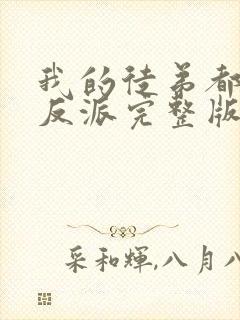 我的徒弟都
反派完整版
采和輝,八月八